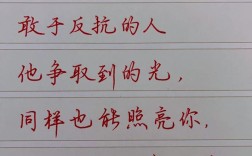 敢于反抗的人
他争取到的光，
同样也能照亮你，